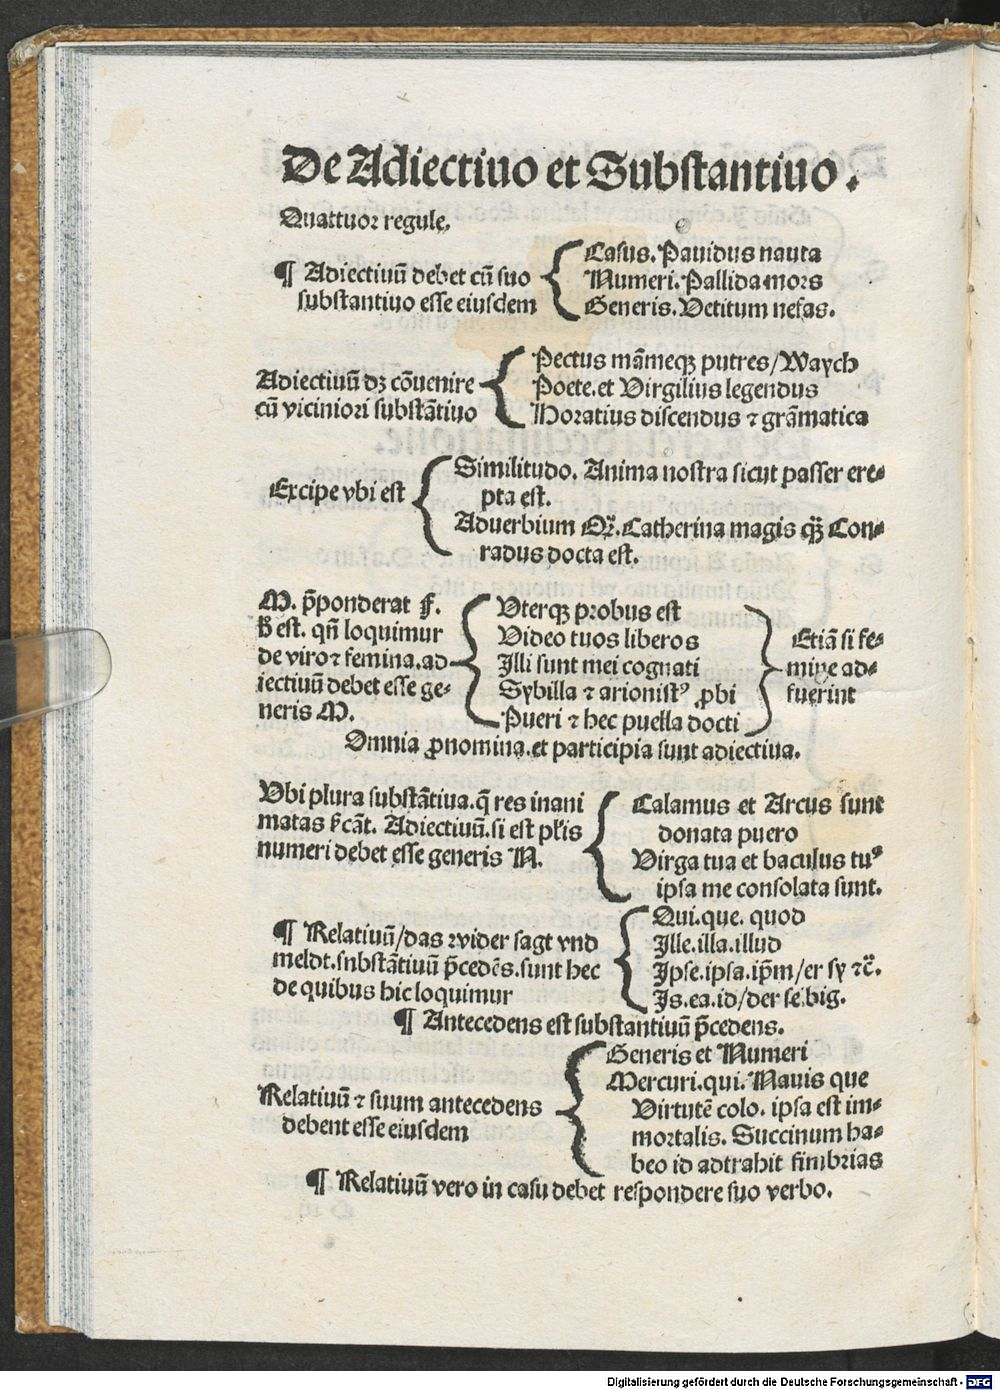 De Adiectiuo et Substantiuo.
Quattuor regule.
¶ Adiectiuū debet cū suo
substantiuo esse eiusdem
Casus. Pauidus nauta
Numeri. Pallida mors
Generis. Vetitum nefas.
Adiectiuū dꝫ cōuenire
cū viciniori substātiuo
Pectus māmeqꝫ putres/Waych
Poete. et Virgilius legendus
Horatius discendus ⁊ grāmatica
Excipe vbi est
Similitudo. Anima nostra sicut passer ere⸗
pta est.
Aduerbium Qꝛ. Catherina magis qꝫ̄ Con⸗
radus docta est.
M. p̄ponderat F.
est. qn̄ loquimur
de viro ⁊ femina. ad
iectiuū debet esse ge⸗
neris M.
Vterqꝫ probus est
Video tuos liberos
Illi sunt mei cognati
Sybilla ⁊ arionistꝰ ꝓbi
Pueri ⁊ hec puella docti
Etiā si fe⸗
mine ad⸗
fuerint
Omnia ꝓnomina. et participia sunt adiectiua.
Vbi plura substātiua. q̄ res inani
matas Adiectiuū. si est
numeri debet esse generis N.
Calamus et Arcus sunt
donata puero
Virga tua et baculus tuꝰ
ipsa me consolata sunt.
¶ Relatiuū/das wider sagt vnd
meldt. snbstātiuū p̄cedēs. sunt hec
de quibus hic loquimur
Qui. que. quod
Ille. illa. illud
Ipse. ipsa. ip̄m/er sy ⁊c̄.
Is. ea. id/der se. big.
¶ Antecedens est substantiuū p̄cedens.
Relatiuū ⁊ suum antecedens
debent esse eiusdem
Generis et Numeri
Mercuri. qui. Nauis que
Virtutē colo. ipsa est im⸗
mortalis. Succinum ha⸗
beo id adtrahit fimbrias
¶ Relatiuū vero in casu debet respondere suo verbo.
Digitalisierung gefördert durch die Deutsche Forschungsgemeinschaft - DFG